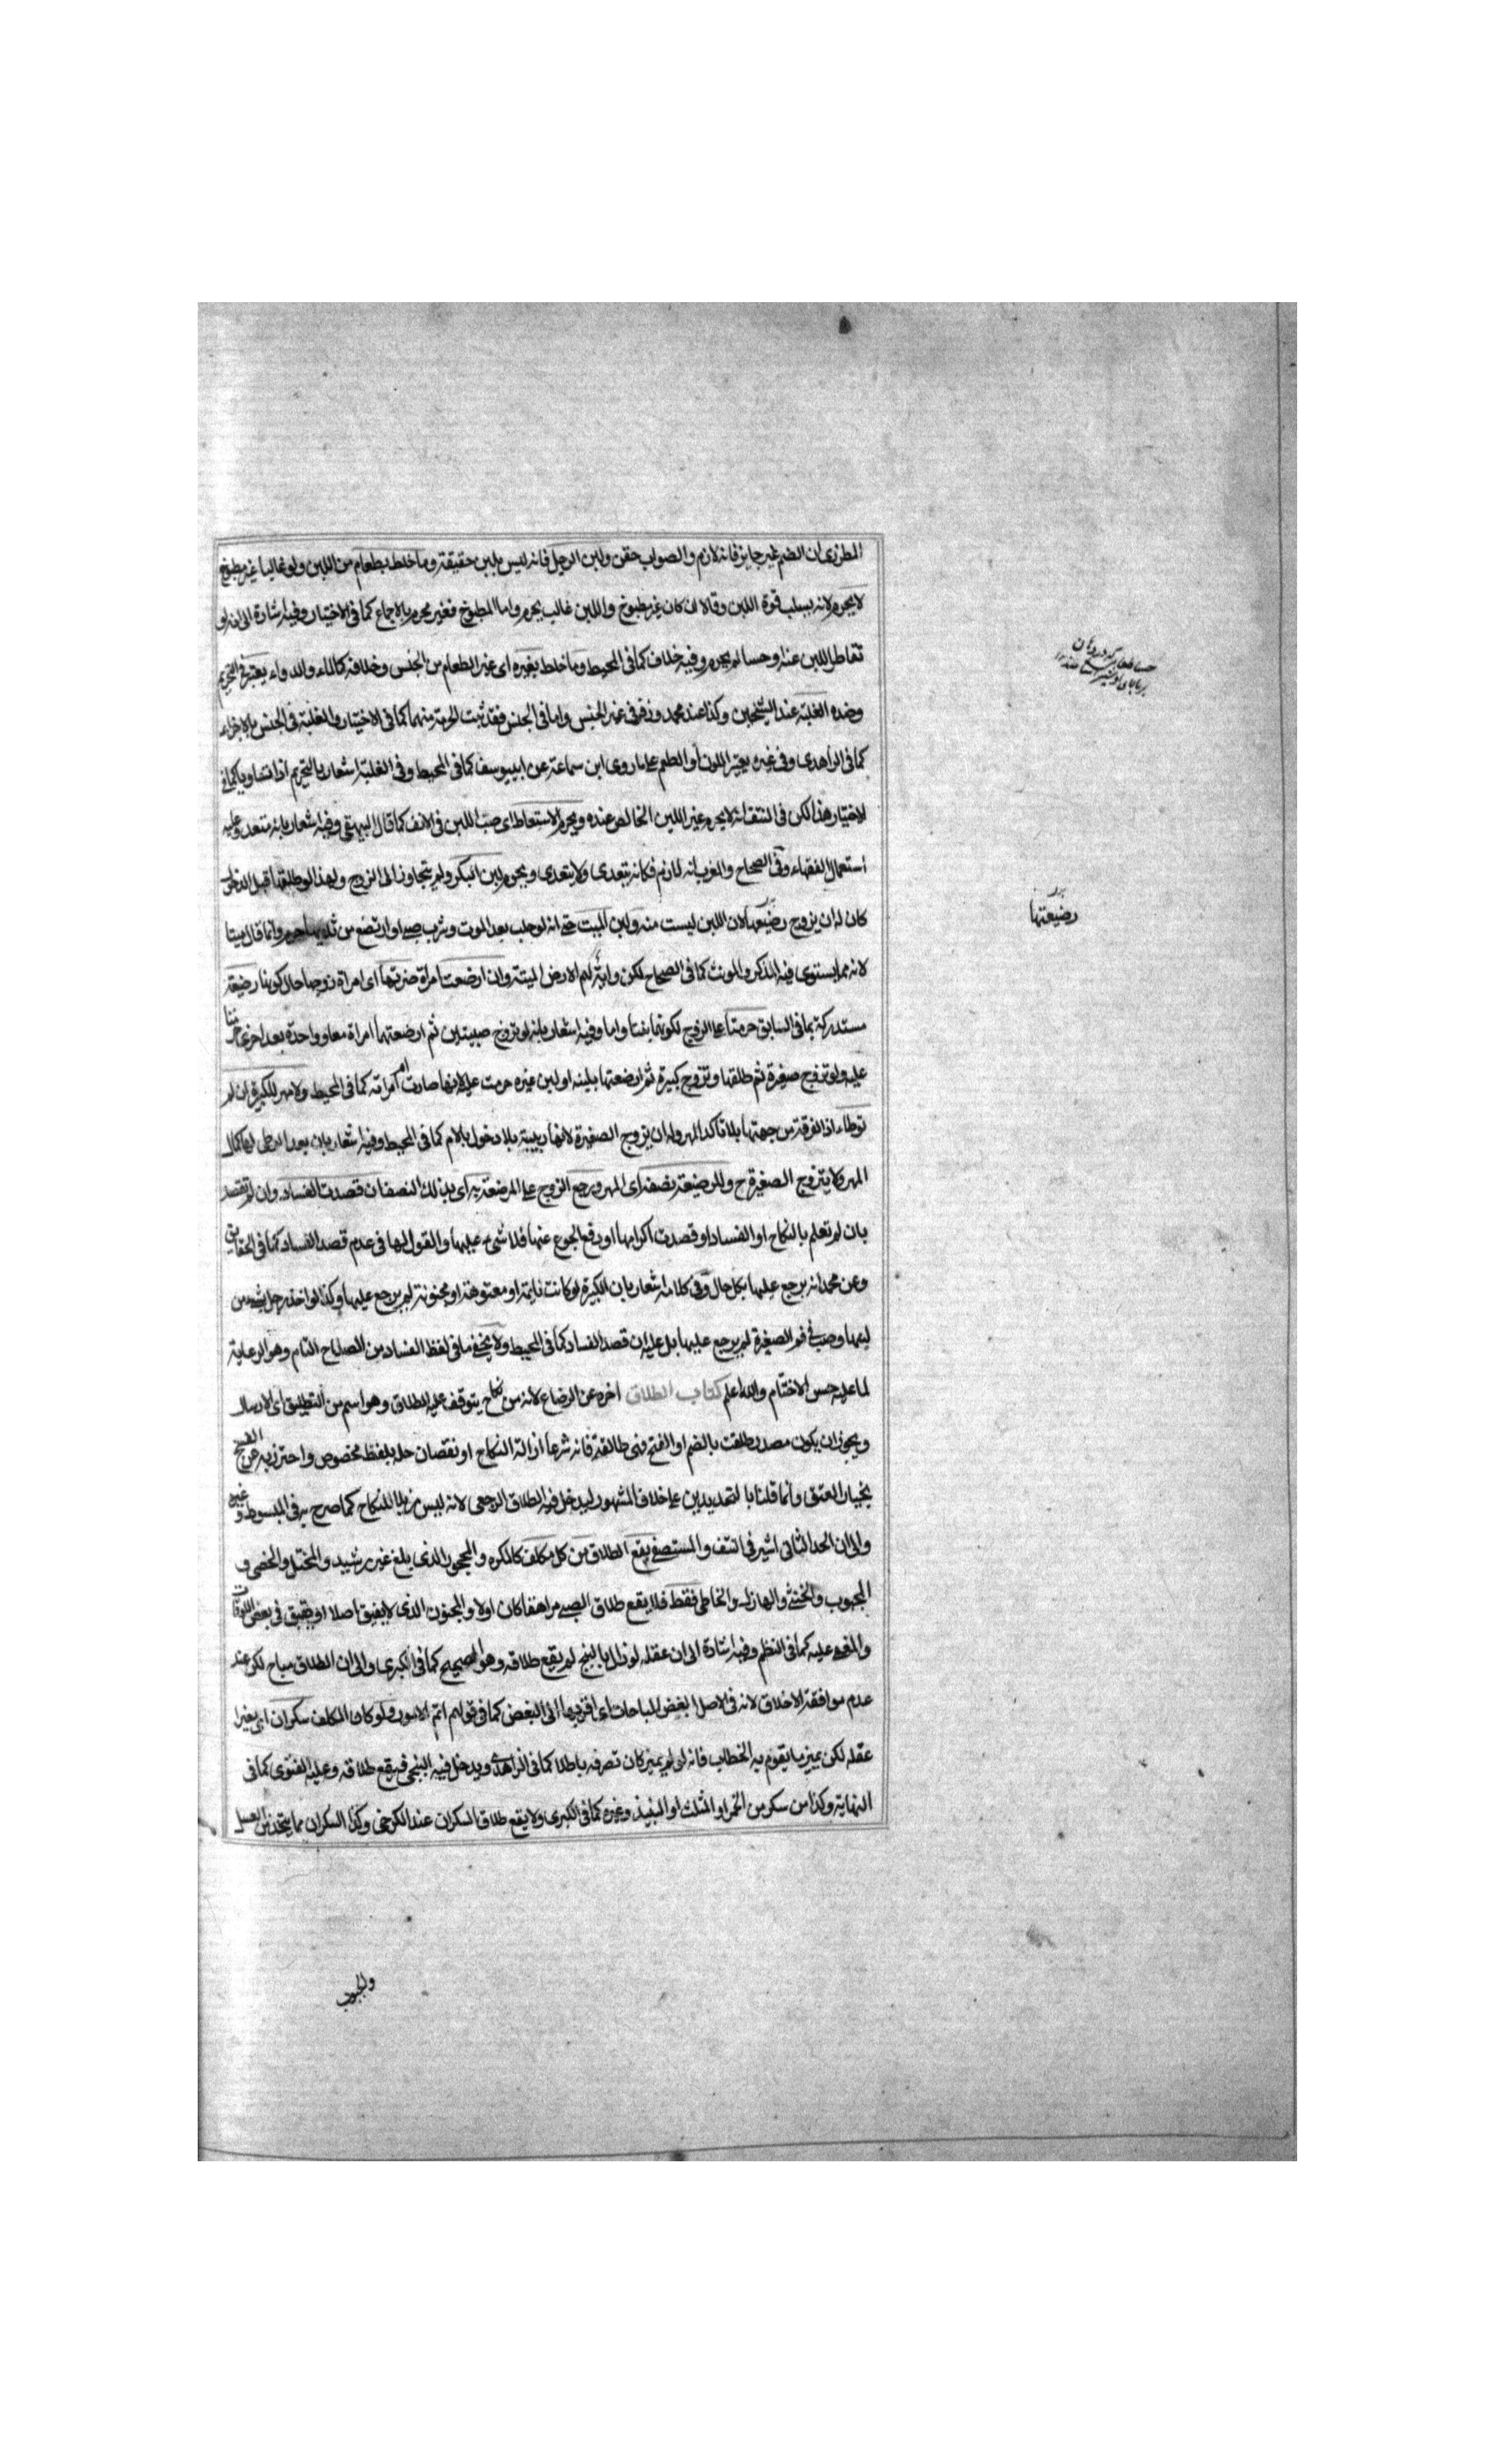 المطرزى ان الضم غير جايز فانه لازم والصواب حقن ولبن الرجل فانه ليس بلبن حقيقة وما خلط بطعام من اللبن ولو غالبا غير مطبوخ
لا يحرم لانه يسلب قوة اللبن وقالا ان كان غير مطبوخ واللبن غالب يحرم واما المطبوخ فغير محرم بالاجماع كما فى الاختيار وفيه اشارة الى انه لو
تقاطر اللبن عنه او حسا لم يحرم وفيه خلاف كما فى المحيط وما خلط بغيره اى غير الطعام من الجنس وخلافه كالماء والدواء يعتبر فى التحريم
وضده الغلبة عند الشيخين وكذا عند محمد وزفر فى غير الجنس واما فى الجنس فقد ثبت الحرمة منهما كما فى الاختيار والغلبة فى الجنس بالاجزاء
كما فى الزاهدى وفى غيره بغير اللون او الطعم على ما روى ابن سماعة عن ابييوسف كما فى المحيط وفى الغلبة اشعار بالتحريم اذا تساويا كما فى
الاختيار هذا لكن فى النتف انه لا يحرم غير اللبن الخالص عنده ويحرم الاستعاط اى صب اللبن فى الانف كما قال البيهقى وفيه اشعار بانه متعد وعليه
استعمال الفقهاء وفى الصحاح والمغرب انه لازم فكانه يتعدى ولا يتعدى ويحرم لبن البكر ولم يتجاوز الى الزوج ولهذا لو طلقها قبل الدخول
كان له ان يزوج رضيعتها لان اللبن ليست منه ولبن الميت حتى انه لو حلب بعد الموت وشرب صبى او ارتضع من ثديها حرم وانما قال ميتا
لانه مما يستوى فيه المذكر والمونث كما فى الصحاح لكن الارض الميتة وان ارضعت امراة ضرتها اى امراة زوجها حال كونها رضيعة
مستدركة بما فى السابق حرمتا على الزوج لكونهما بنتا واما وفيه اشعار بانه لو تزوج صبيتين ثم ارضعتهما امراة معا وواحدة بعد اخرى حرمتا
عليه ولو تزوج صغيرة ثم طلقها وتزوج كبيرة ثم ارضعتها بلبنه او لبن غيره حرمت عليه لانها صارت ام امراته كما فى المحيط ولا مهر للكبيرة ان لم
توطاء اذ الفرقة من جهتها بلا تاكد المهر وله ان يزوج الصغيرة لانها ربيبة بلا دخول بالام كما فى المحيط وفيه اشعار بان بعد الوطى لها كمال
المهر ولا يتزوج الصغيرة ح وللرضيعة نصفه اى المهر ورجع الزوج على المرضعة به اى بذلك النصف ان قصدت الفساد وان لم تقصد
بان لم تعلم بالنكاح او الفساد او قصدت اكرامها او رفع الجوع عنها فلا شىء عليها والقول لها فى عدم قصد الفساد كما فى الحقايق
وعن محمد انه يرجع عليها بكل حال وفى كلامه اشعار بان الكبيرة لو كانت نايمة او معتوهة او مجنونة لم يرجع عليها وكذا لو اخذ رجل شيء من
لبنها وصب فى فم الصغيرة لم يرجع عليها بل عليه ان قصد الفساد كما فى المحيط ولا يخفى ما فى لفظ الفساد من الصلاح التام وهو الرعاية
لما عليه حسن الاختتام والله اعلم كتاب الطلاق اخره عن الرضاع لانه من نكاح يتوقف عليه الطلاق وهو اسم من التطليق اى الارسال
ويجوز ان يكون مصدر طلقت بالضم او الفتح فهى طالقة فانه شرعا ازالة النكاح او نقصان حله بلفظ مخصوص واحترز به عن الفسخ
بخيار العتق وانما قلنا بالتحديدين على خلاف المشهور ليدخل فيه الطلاق الرجعى لانه ليس مزيلا للنكاح كما صرح به فى المبسوط وغيره
والى ان الحد الثانى اشير فى النتف والمستصفى يقع الطلاق من كل مكلف كالمكره والمحجور الذى بلغ غير رشيد والمختل والخصى و
المجبوب والخنثى والهازل والخاطى فقط فلا يقع طلاق الصبى مراهقا كان اولا والمجنون الذى لا يفيق اصلا او يفيق فى بعض الاوقات
والمغمى عليه كما فى النظم وفيه اشارة الى ان عقله لو زال بالبنج لم يقع طلاقه وهو الصحيح كما فى الكبرى والى ان الطلاق مباح لكن عند
عدم موافقة الاخلاق لانه فى الاصل ابغض المباحات اى اقربها الى البغض كما فى قولهم اتم الامور ولو كان المكلف سكران اى بغيرا
عقله لكن يميز ما يقوم به الخطاب فانه لو لم يميز كان تصرفه باطلا كما فى الزاهدى ويدخل فيه البنجى فيقع طلاقه وعليه الفتوى كما فى
النهاية وكذا من سكر من الخمر او المثلث او النبيذ وغيره كما فى الكبرى ولا يقع طلاق السكران عند الكرخى وكذا السكران مما يتخذ من العسل
رضيعتها
والحبوب